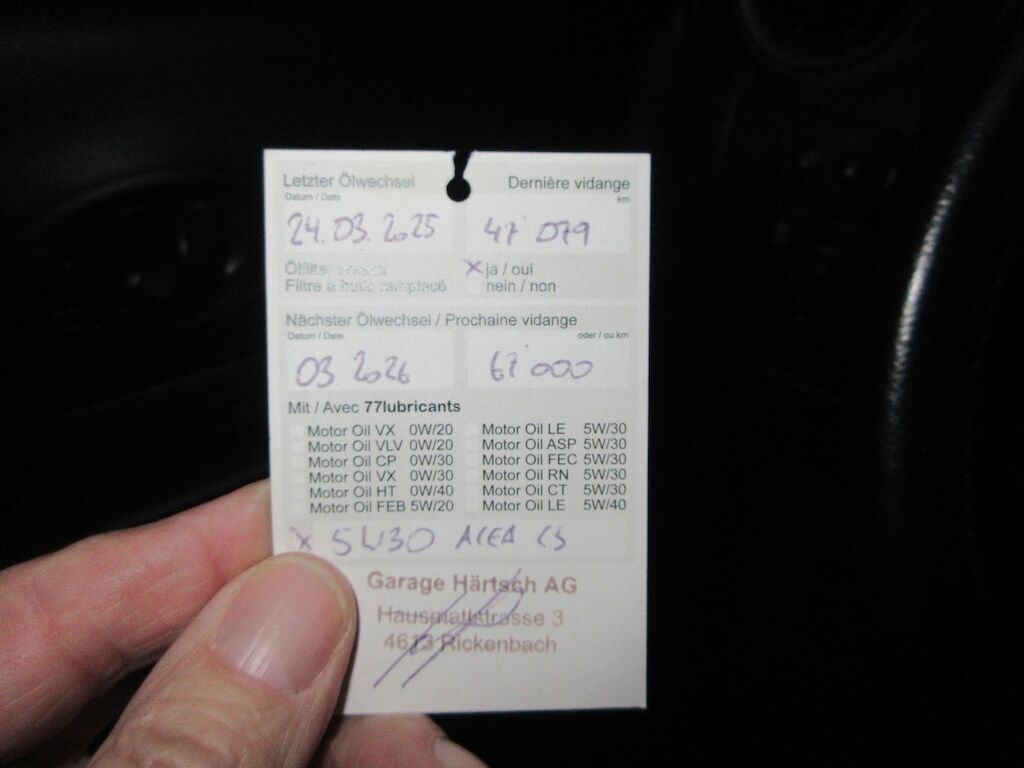 Letzter Ölwechsel Dernière vidange
Datum / Date km
24.03.2025 47 079
Ölfilter ersetzt X ja / oui
Filtre à huile remplacé nein / non
Nächster Ölwechsel / Prochaine vidange
Datum / Date oder / ou km
03 2026 67 000
Mit / Avec 77lubricants
Motor Oil VX 0W/20 Motor Oil LE 5W/30
Motor Oil VLV 0W/20 Motor Oil ASP 5W/30
Motor Oil CP 0W/30 Motor Oil FEC 5W/30
Motor Oil VX 0W/30 Motor Oil RN 5W/30
Motor Oil HT 0W/40 Motor Oil CT 5W/30
Motor Oil FEB 5W/20 Motor Oil LE 5W/40
X 5W30 ACEA C3
Garage Härtsch AG
Hausmattstrasse 3
4613 Rickenbach